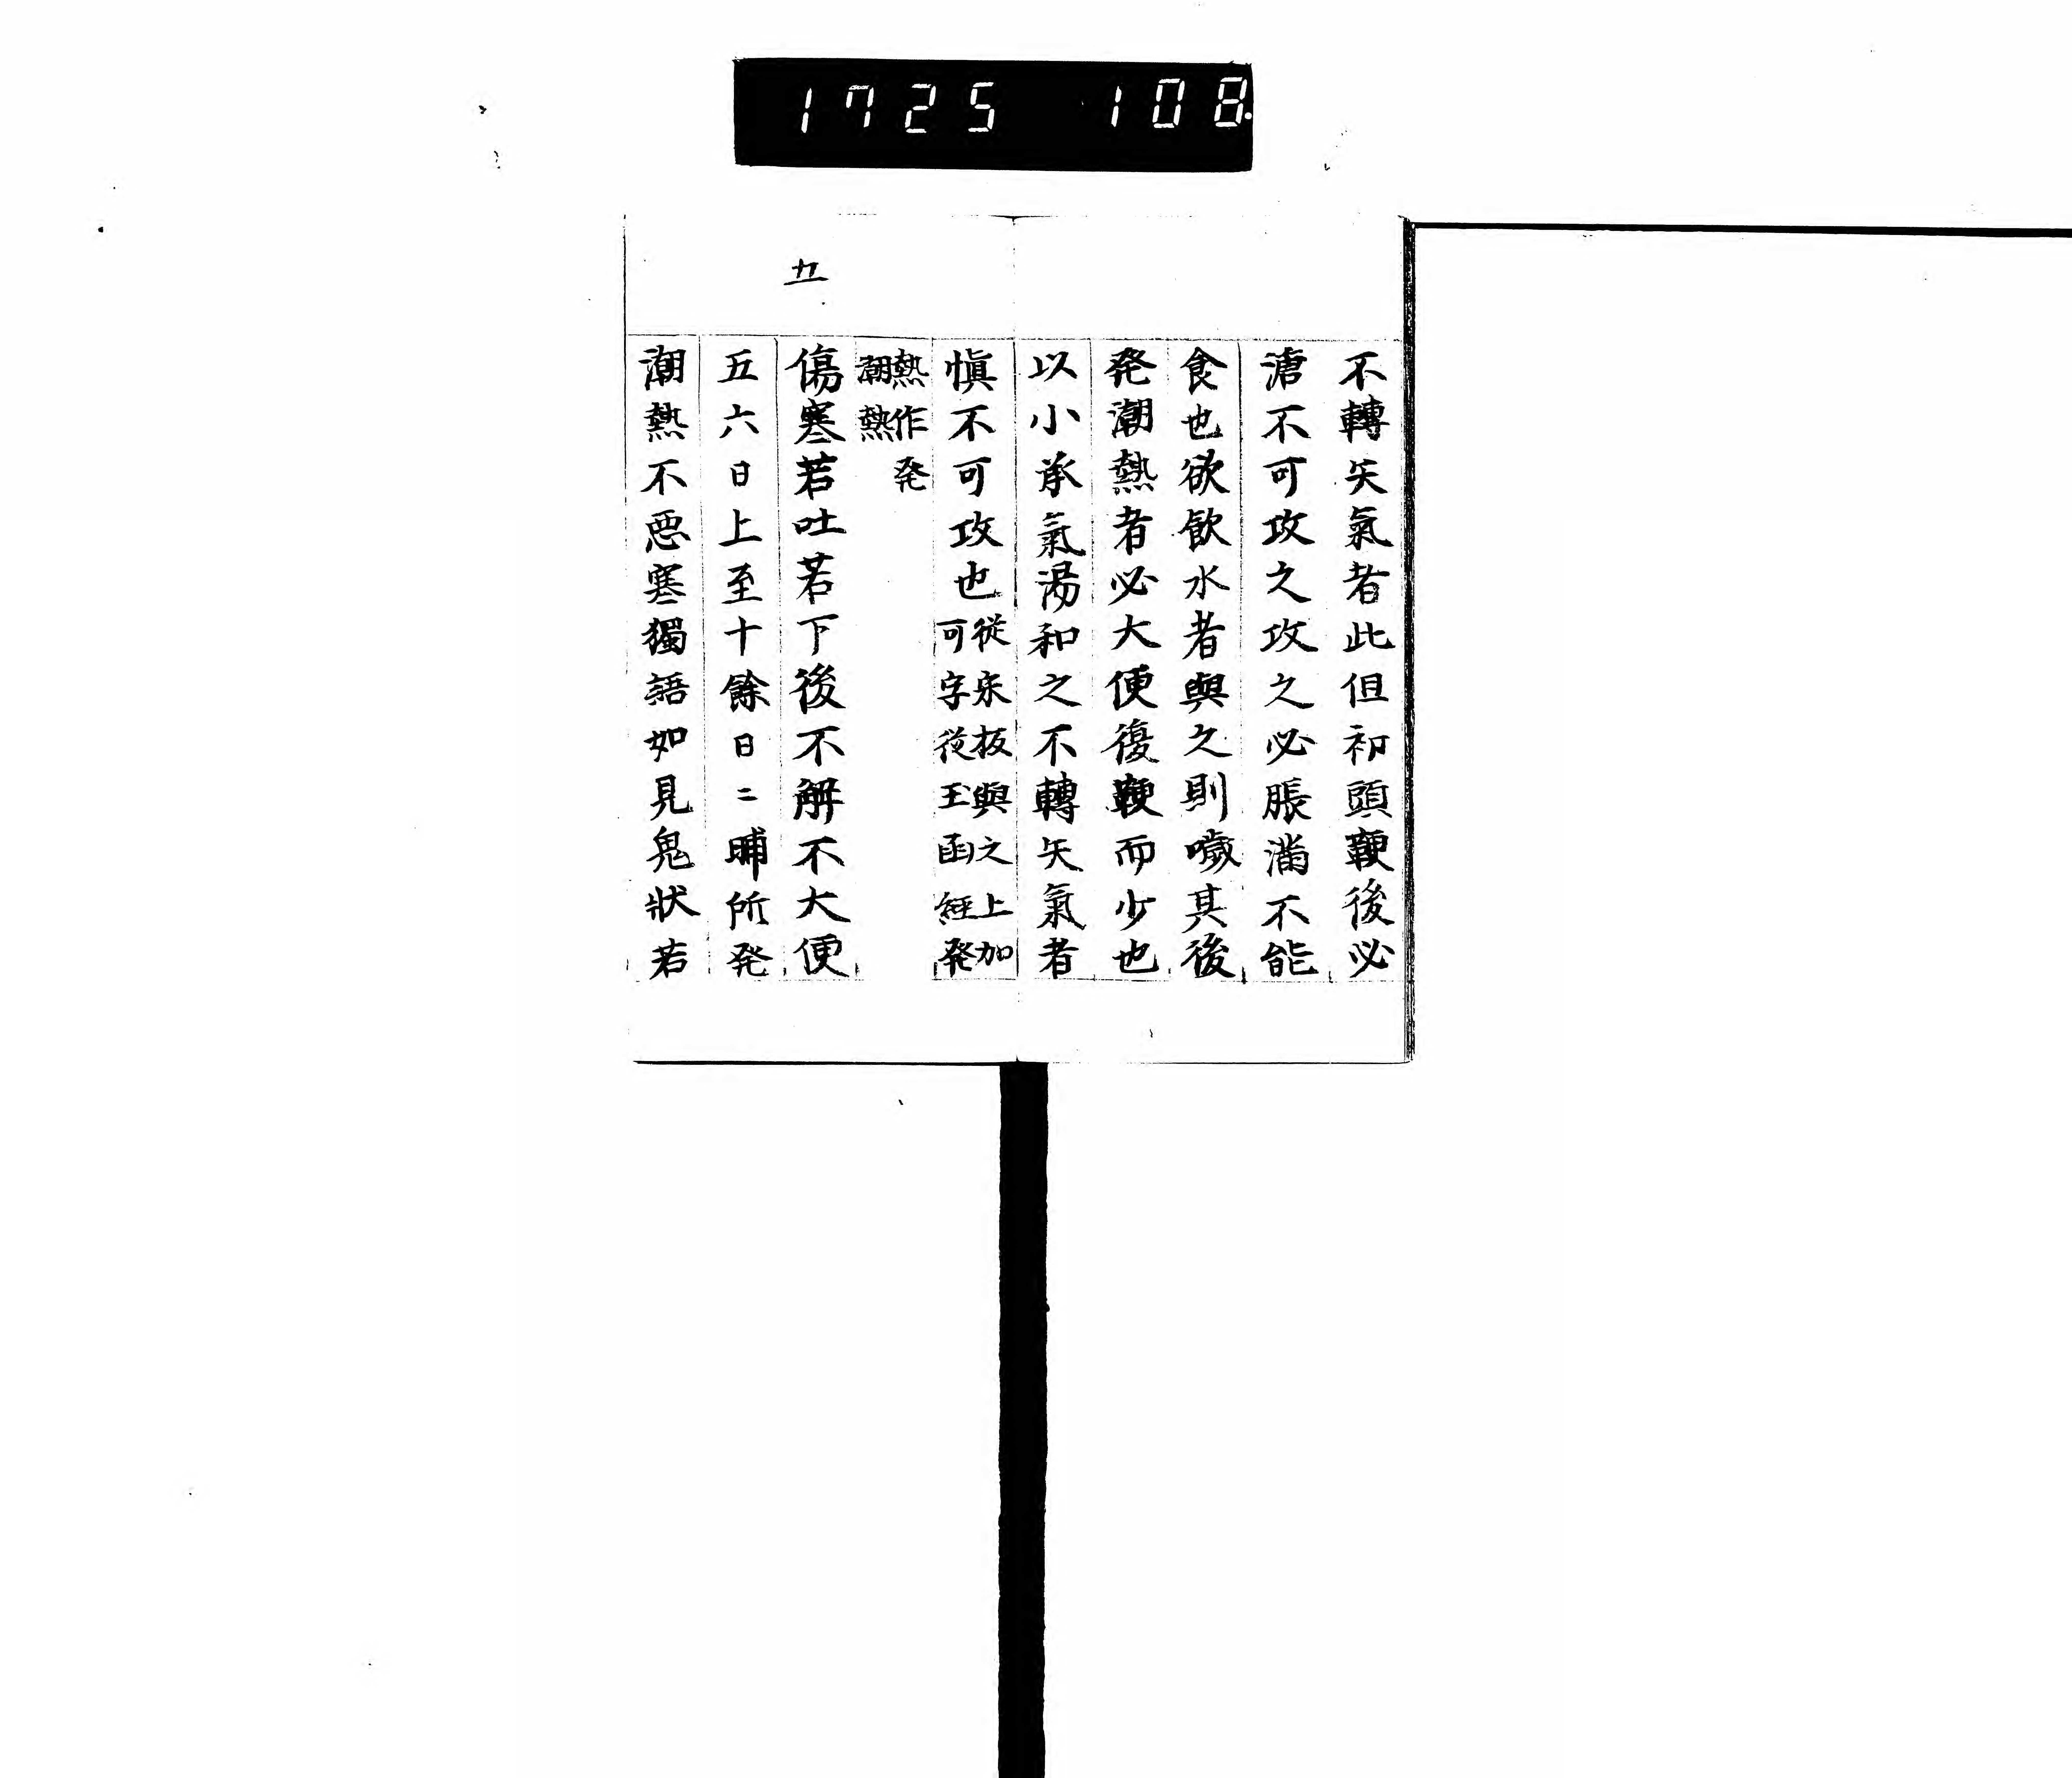 1725 108.
不轉矢氣者此但初頭鞕後必
溏不可攻之攻之必脹滿不能
食也欲飲水者與之則噦其後
発潮熱者必大便復鞕而少也
以小承氣湯和之不轉矢氣者
慎不可攻也從宋板與之上加
可字從玉函經発
熱作発
潮熱
五
傷寒若吐若下後不解不大便
五六日上至十餘日二晡所発
潮熱不惡寒獨語如見鬼狀若